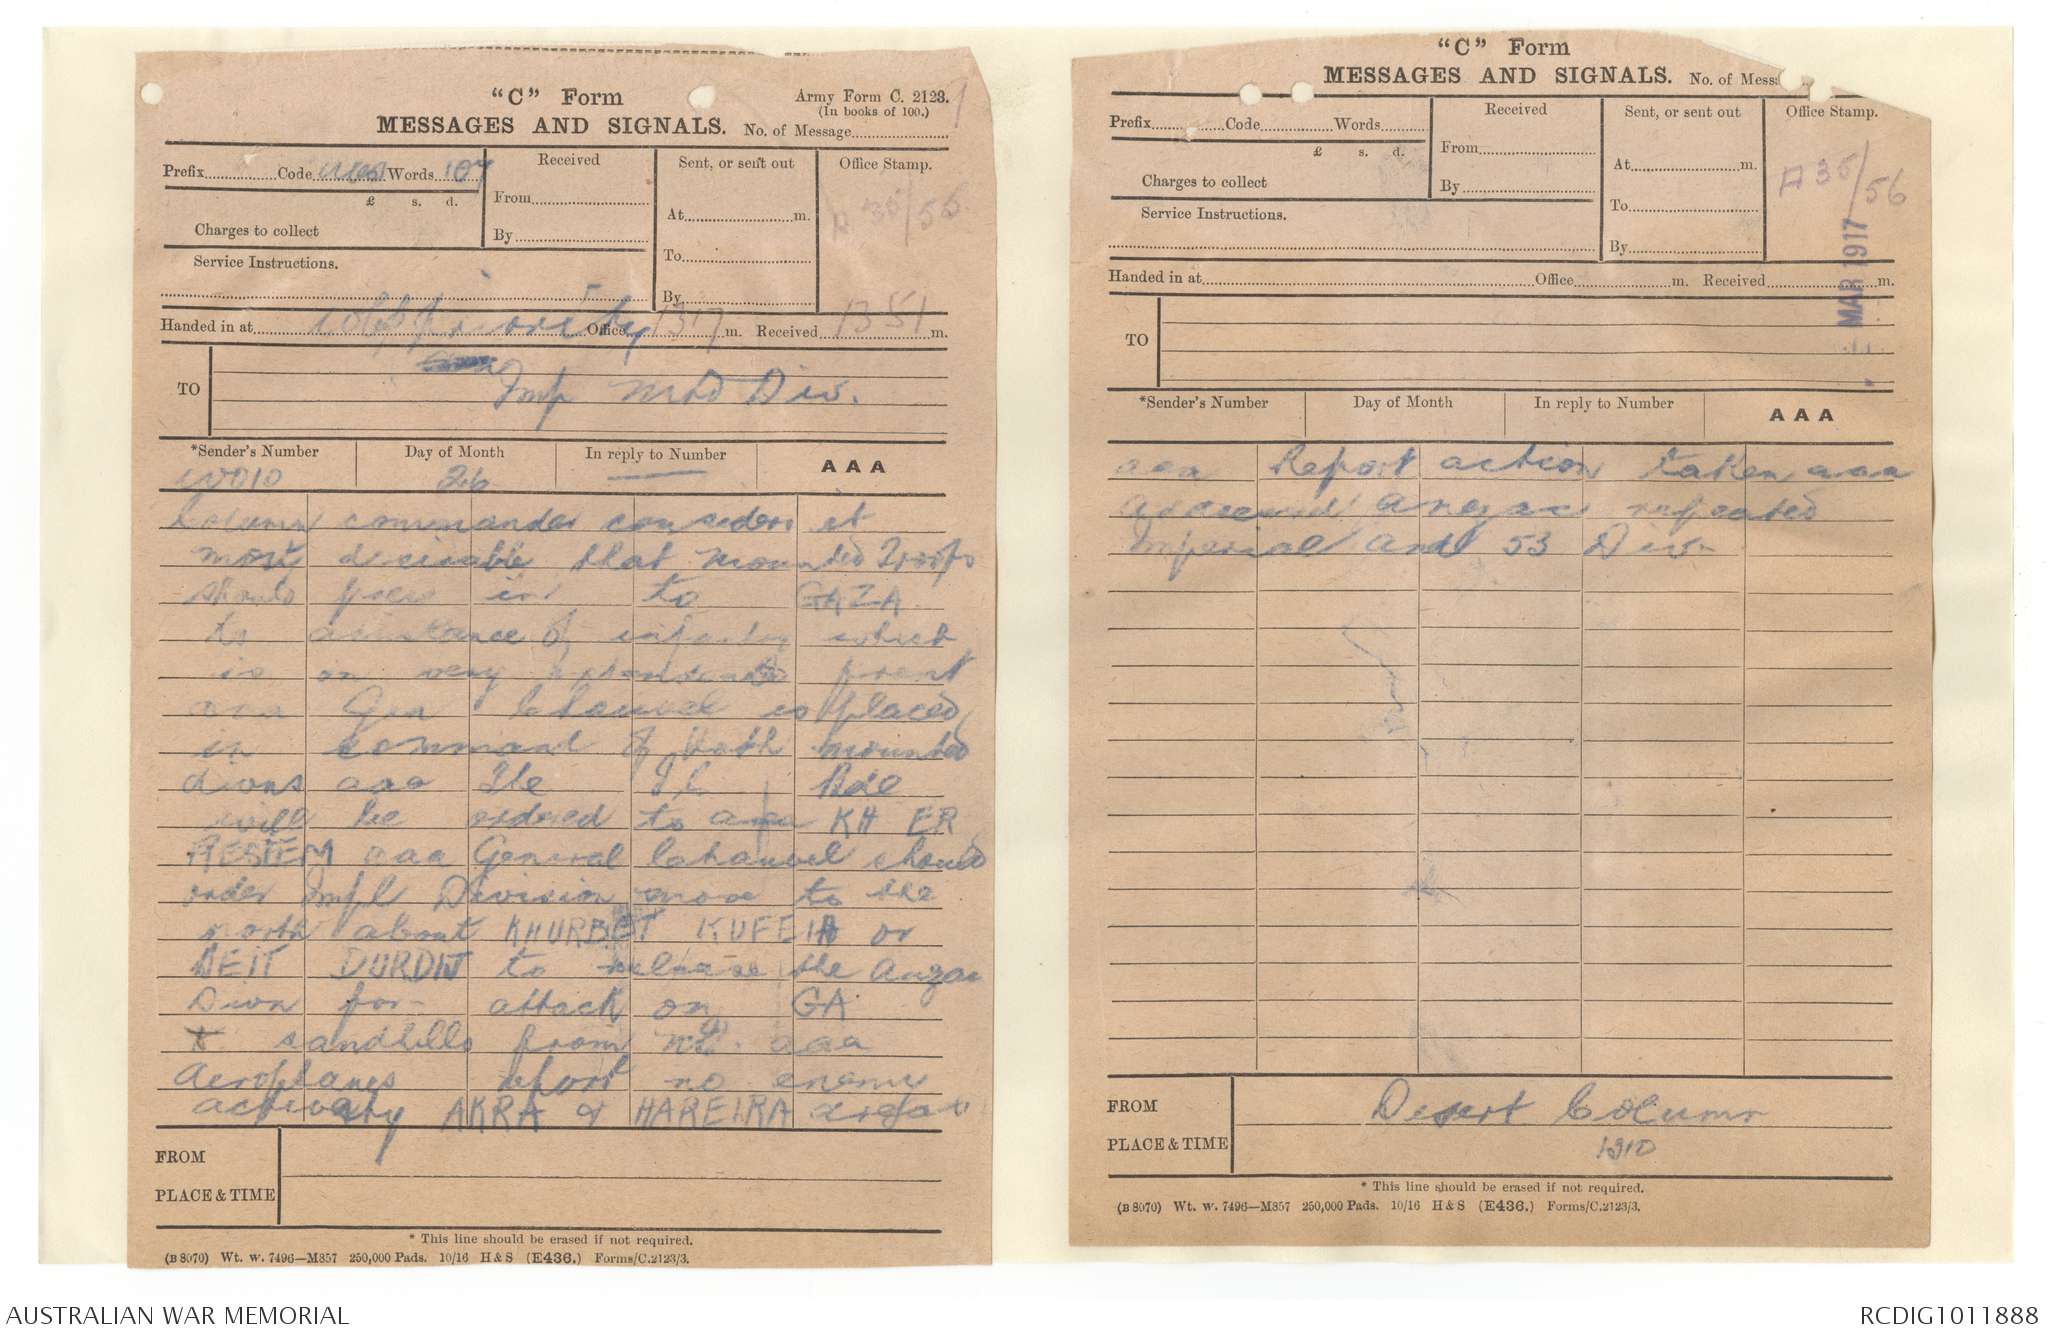 "C" Form
Army Form C. 2123.
(In books of 100.)
MESSAGES AND SIGNALS. No. of Message
1
Prefix Code Words 107
£ s. d.
Charges to collect
Service Instructions.
Received
From
By
Sent, or sent out
At m.
To
By
Office Stamp.
A 35/56
Priority
Handed in at Office 1317 m. Received 1351 m.
TO
Imp Mtd Div.
*Sender's Number
Day of Month
In reply to Number
AAA
26
Column commander considers it
most desirable that mounted Troops
should press in to GAZA
to assistance of infantry which
is on very front
aaa Gen Chauvel is placed
in command of both mounted
divns aaa The Bde
will be ordered to area KH ER
RESEEM aaa General Chauvel should
order Impl Division move to the
north about KHURBET KUFEIH or
BEIT DURDIS to release the Anzac
Divn for attack on GA
sandhills from aaa
Aeroplanes report no enemy
activity AKRA & HAREIRA
FROM
PLACE & TIME
* This line should be erased if not required.
(B 8070) Wt. w. 7496—M857 250,000 Pads. 10/16 H & S (E436.) Forms/C.2123/3.
"C" Form
MESSAGES AND SIGNALS. No. of Mess
Prefix Code Words
£ s. d.
Charges to collect
Service Instructions.
Received
From
By
Sent, or sent out
At m.
To
By
Office Stamp.
A 35/56
MAR 1917
Handed in at Office m. Received m.
TO
*Sender's Number
Day of Month
In reply to Number
AAA
aaa Report action taken aaa
addressed Anzac repeated
Imperial and 53 Divn
FROM
Desert Column
PLACE & TIME
1310
* This line should be erased if not required.
(B 8070) Wt. w. 7496—M857 250,000 Pads. 10/16 H & S (E436.) Forms/C.2123/3.
AUSTRALIAN WAR MEMORIAL
RCDIG1011888